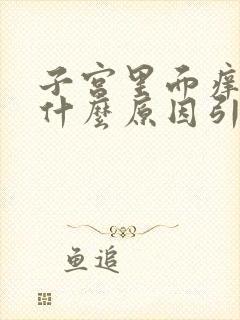 子宫里而痒
什麽原因引
鱼追